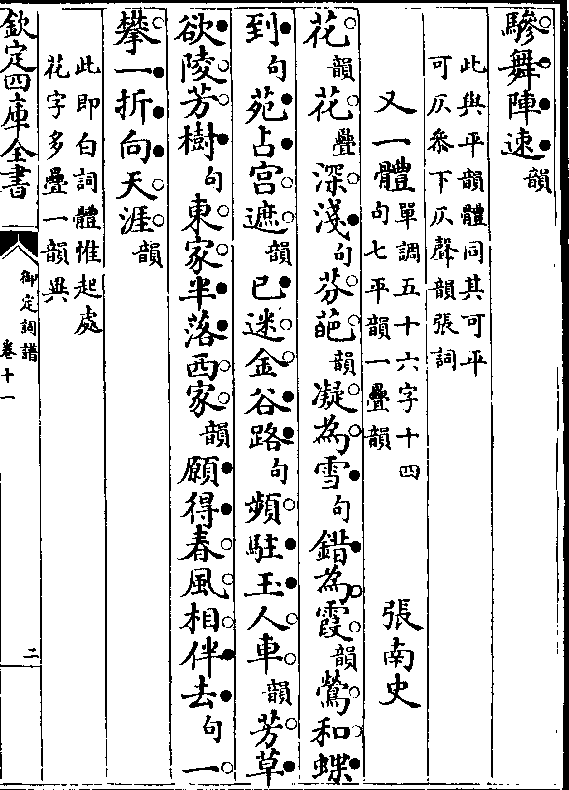 驂舞陣速韻
此與平韻體同其可平
可仄叅下仄聲韻張詞
又一體單調五十六字十四
句七平韻一疊韻
張南史
花韻花疊深淺句芬葩韻凝為雪句錯為霞韻鶯和蝶
到句苑占宫遮韻已迷金谷路句頻駐玉人車韻芳草
欲陵芳樹句東家半落西家韻願得春風相伴去句一
攀一折向天涯韻
此即白詞體惟起處
花字多疊一韻異
欽定四庫全書
御定詞譜
卷十一
二